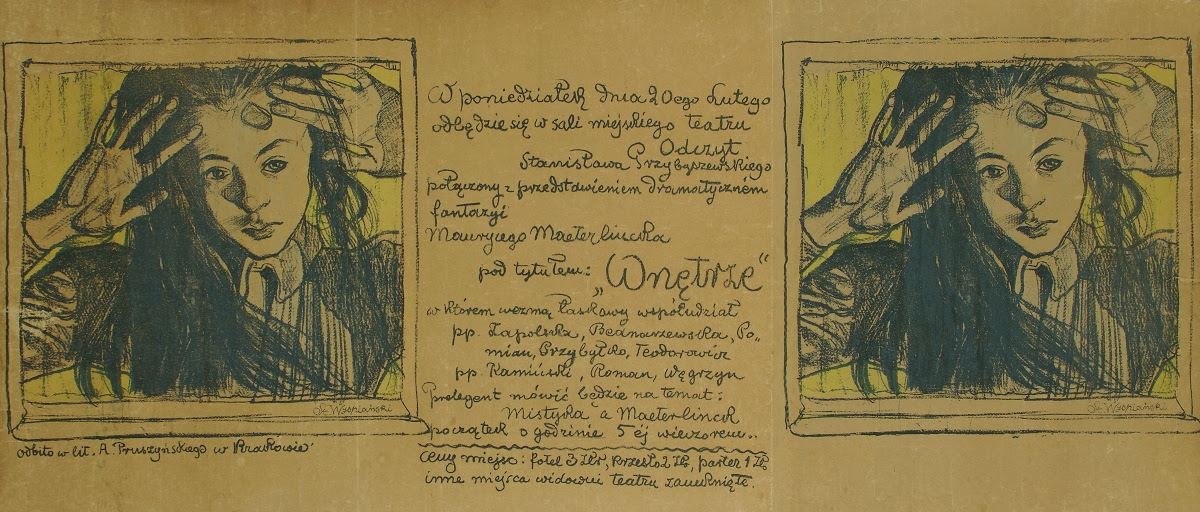 W poniedziałek dnia 20ego Lutego
odbędzie się w sali miejskiego teatru
Odczyt
Stanisława Przybyszewskiego
połączony z przedstawieniem dramatycznem
fantazyi
Maurycego Maeterlincka
pod tytułem: „Wnętrze“
w którem wezmą łaskawy współudział
pp. Zapolska, Bednarzewska, Po„
mian, Przybyłko, Teodorowicz
pp. Kamiński, Roman, Węgrzyn
Prelegent mówić będzie na temat:
Mistyka a Maeterlinck
początek o godzinie 5ej wieczorem..
Ceny miejsc: fotel 3 Złr, krzesło 2 Zł, parter 1 Zł
inne miejsca widowni teatru zamknięte.
St Wyspiański
St Wyspiański
odbito w lit. A. Pruszyńskiego w Krakowie